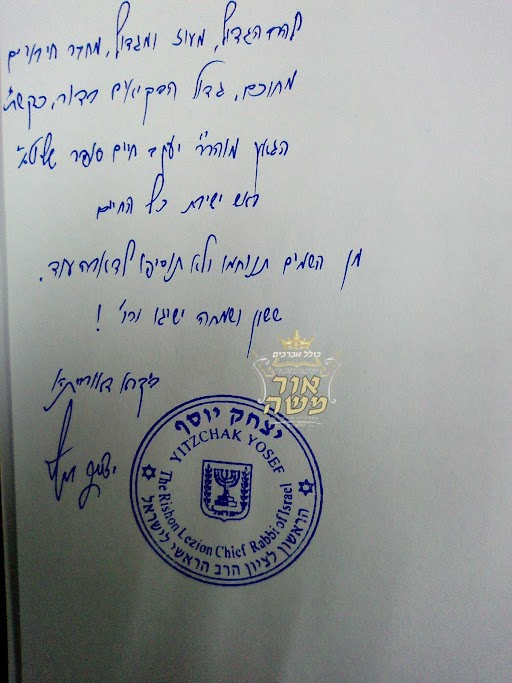 להרב הגדול, מעוז ומגדול, מחבר חיבורים
מחוכם, גדול הבקיאים בדור, כקש"ת
הגאון מוהר"ר יעקב חיים סופר שליט"א
ראש ישיבת כף החיים
מן השמים תנוחמו ולא תוסיפו לדאבה עוד.
ששון ושמחה ישיגו וכו' !
ביקרא דאורייתא
יצחק יוסף
כולל אברכים
אור
משה
יצחק יוסף
YITZCHAK YOSEF
The Rishon Lezion Chief Rabbi of Israel
הראשון לציון הרב הראשי לישראל